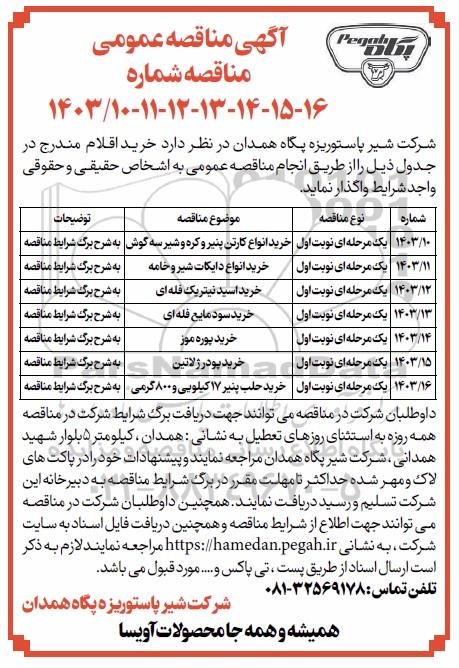 Pegah
پگاه
آگهی مناقصه عمومی
مناقصه شماره
۱۴۰۳/۱۰-۱۱-۱۲-۱۳-۱۴-۱۵-۱۶
شرکت شیر پاستوریزه پگاه همدان در نظر دارد خرید اقلام مندرج در
جدول ذیل را از طریق انجام مناقصه عمومی به اشخاص حقیقی و حقوقی
واجد شرایط واگذار نماید.
شماره نوع مناقصه موضوع مناقصه توضیحات
۱۴۰۳/۱۰ یک مرحله ای نوبت اول خرید انواع کارتن پنیر و کره و شیر سه گوش به شرح برگ شرایط مناقصه
۱۴۰۳/۱۱ یک مرحله ای نوبت اول خرید انواع دایکات شیر و خامه به شرح برگ شرایط مناقصه
۱۴۰۳/۱۲ یک مرحله ای نوبت اول خرید اسید نیتریک فله ای به شرح برگ شرایط مناقصه
۱۴۰۳/۱۳ یک مرحله ای نوبت اول خرید سود مایع فله ای به شرح برگ شرایط مناقصه
۱۴۰۳/۱۴ یک مرحله ای نوبت اول خرید پوره موز به شرح برگ شرایط مناقصه
۱۴۰۳/۱۵ یک مرحله ای نوبت اول خرید پودر ژلاتین به شرح برگ شرایط مناقصه
۱۴۰۳/۱۶ یک مرحله ای نوبت اول خرید حلب پنیر ۱۷ کیلویی و ۸۰۰ گرمی به شرح برگ شرایط مناقصه
داوطلبان شرکت در مناقصه می توانند جهت دریافت برگ شرایط شرکت در مناقصه
همه روزه به استثنای روزهای تعطیل به نشانی : همدان ، کیلومتر ۵ بلوار شهید
همدانی ، شرکت شیر پگاه همدان مراجعه نمایند و پیشنهادات خود را در پاکت های
لاک و مهر شده حداکثر تا مهلت مقرر در برگ شرایط مناقصه به دبیرخانه این
شرکت تسلیم و رسید دریافت نمایند. همچنین داوطلبان شرکت در مناقصه
می توانند جهت اطلاع از شرایط مناقصه و همچنین دریافت فایل اسناد به سایت
شرکت ، به نشانی https://hamedan.pegah.ir مراجعه نمایند لازم به ذکر
است ارسال اسناد از طریق پست ، تی پاکس و .... مورد قبول می باشد.
تلفن تماس : ۳۲۵۶۹۱۷۸-۰۸۱
شرکت شیر پاستوریزه پگاه همدان
همیشه و همه جا محصولات آویسا